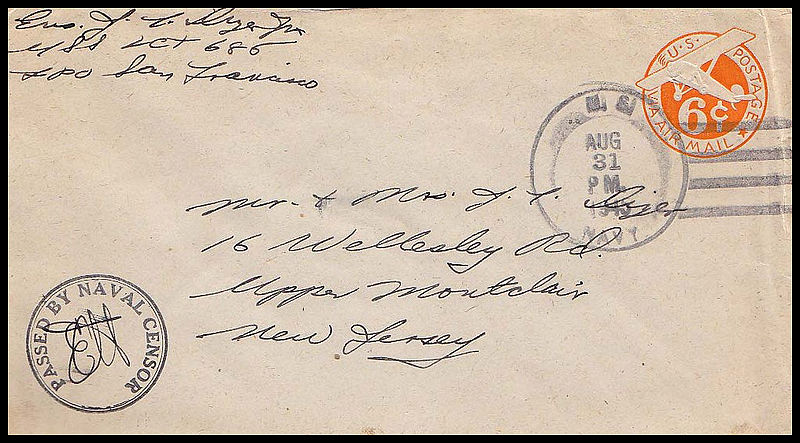 Ens. Jr
USS LCT 686
FPO San Francisco
U.S. POSTAGE
VIA AIR MAIL
6¢
U. S.
AUG
31
PM.
NAVY
Mr. + Mrs.
16 Wellesley Rd.
Upper Montclair
New Jersey
PASSED BY NAVAL CENSOR